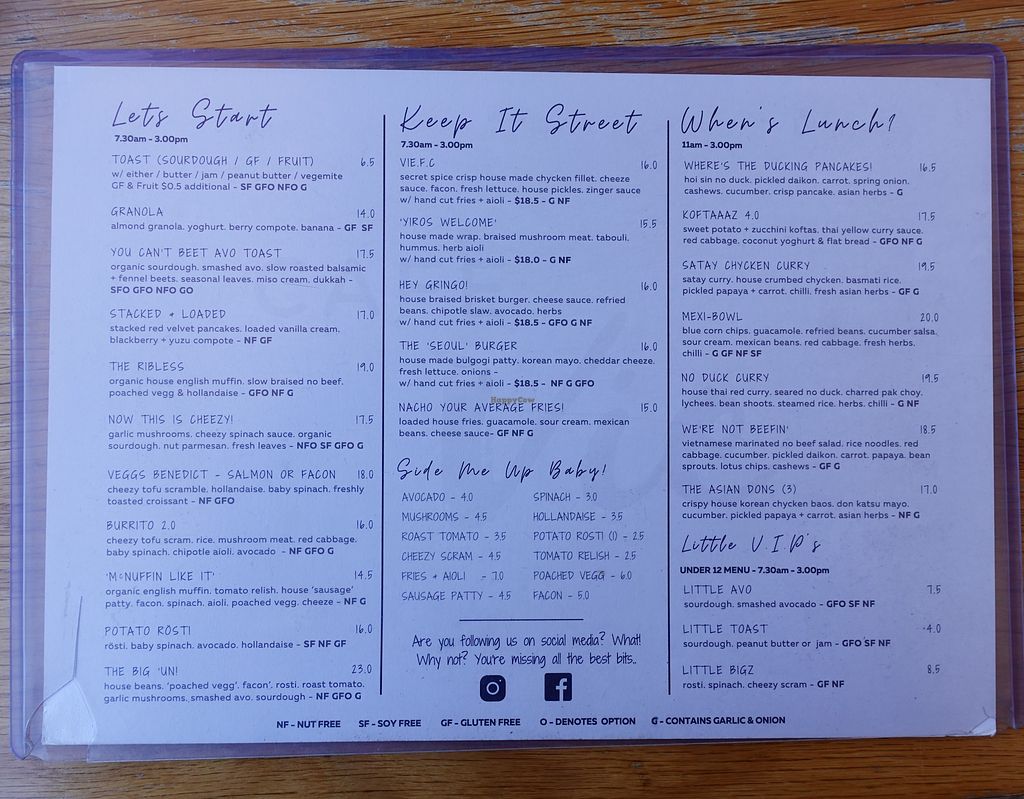 Lets Start
7.30am - 3.00pm
TOAST (SOURDOUGH / GF / FRUIT) 6.5
w/ either / butter / jam / peanut butter / vegemite
GF & Fruit $0.5 additional - SF GFO NFO G
GRANOLA 14.0
almond granola. yoghurt. berry compote. banana - GF SF
YOU CAN'T BEET AVO TOAST 17.5
organic sourdough. smashed avo. slow roasted balsamic
+ fennel beets. seasonal leaves. miso cream. dukkah -
SFO GFO NFO GO
STACKED + LOADED 17.0
stacked red velvet pancakes. loaded vanilla cream.
blackberry + yuzu compote - NF GF
THE RIBLESS 19.0
organic house english muffin. slow braised no beef.
poached vegg & hollandaise - GFO NF G
NOW THIS IS CHEEZY! 17.5
garlic mushrooms. cheezy spinach sauce. organic
sourdough. nut parmesan. fresh leaves - NFO SF GFO G
VEGGS BENEDICT - SALMON OR FACON 18.0
cheezy tofu scramble. hollandaise. baby spinach. freshly
toasted croissant - NF GFO
BURRITO 2.0 16.0
cheezy tofu scram. rice. mushroom meat. red cabbage.
baby spinach. chipotle aioli. avocado - NF GFO G
'McNUFFIN LIKE IT' 14.5
organic english muffin. tomato relish. house 'sausage'
patty. facon. spinach. aioli. poached vegg. cheeze - NF G
POTATO RÖSTI 16.0
rösti. baby spinach. avocado. hollandaise - SF NF GF
THE BIG 'UN! 23.0
house beans. 'poached vegg'. facon'. rosti. roast tomato.
garlic mushrooms. smashed avo. sourdough - NF GFO G
Keep It Street
7.30am - 3.00pm
VIE.F.C 16.0
secret spice crisp house made chycken fillet. cheeze
sauce. facon. fresh lettuce. house pickles. zinger sauce
w/ hand cut fries + aioli - $18.5 - G NF
'YIROS WELCOME' 15.5
house made wrap. braised mushroom meat. tabouli.
hummus. herb aioli
w/ hand cut fries + aioli - $18.0 - G NF
HEY GRINGO! 16.0
house braised brisket burger. cheese sauce. refried
beans. chipotle slaw. avocado. herbs
w/ hand cut fries + aioli - $18.5 - GFO G NF
THE 'SEOUL' BURGER 16.0
house made bulgogi patty. korean mayo. cheddar cheeze.
fresh lettuce. onions -
w/ hand cut fries + aioli - $18.5 - NF G GFO
HappyCow
NACHO YOUR AVERAGE FRIES! 15.0
loaded house fries. guacamole. sour cream. mexican
beans. cheeze sauce- GF NF G
Side Me Up Baby!
AVOCADO - 4.0 SPINACH - 3.0
MUSHROOMS - 4.5 HOLLANDAISE - 3.5
ROAST TOMATO - 3.5 POTATO ROSTI (1) - 2.5
CHEEZY SCRAM - 4.5 TOMATO RELISH - 2.5
FRIES + AIOLI - 7.0 POACHED VEGG - 6.0
SAUSAGE PATTY - 4.5 FACON - 5.0
Are you following us on social media? What!
Why not? You're missing all the best bits..
When's Lunch?
11am - 3.00pm
WHERE'S THE DUCKING PANCAKES! 16.5
hoi sin no duck. pickled daikon. carrot. spring onion.
cashews. cucumber. crisp pancake. asian herbs - G
KOFTAAAZ 4.0 17.5
sweet potato + zucchini koftas. thai yellow curry sauce.
red cabbage. coconut yoghurt & flat bread - GFO NF G
SATAY CHYCKEN CURRY 19.5
satay curry. house crumbed chycken. basmati rice.
pickled papaya + carrot. chilli. fresh asian herbs - GF G
MEXI-BOWL 20.0
blue corn chips. guacamole. refried beans. cucumber salsa.
sour cream. mexican beans. red cabbage. fresh herbs.
chilli - G GF NF SF
NO DUCK CURRY 19.5
house thai red curry. seared no duck. charred pak choy.
lychees. bean shoots. steamed rice. herbs. chilli - G NF
WE'RE NOT BEEFIN' 18.5
vietnamese marinated no beef salad. rice noodles. red
cabbage. cucumber. pickled daikon. carrot. papaya. bean
sprouts. lotus chips. cashews - GF G
THE ASIAN DONS (3) 17.0
crispy house korean chycken baos. don katsu mayo.
cucumber. pickled papaya + carrot. asian herbs - NF G
Little V.I.P's
UNDER 12 MENU - 7.30am - 3.00pm
LITTLE AVO 7.5
sourdough. smashed avocado - GFO SF NF
LITTLE TOAST 4.0
sourdough. peanut butter or jam - GFO SF NF
LITTLE BIGZ 8.5
rosti. spinach. cheezy scram - GF NF
NF - NUT FREE SF - SOY FREE GF - GLUTEN FREE O - DENOTES OPTION G - CONTAINS GARLIC & ONION